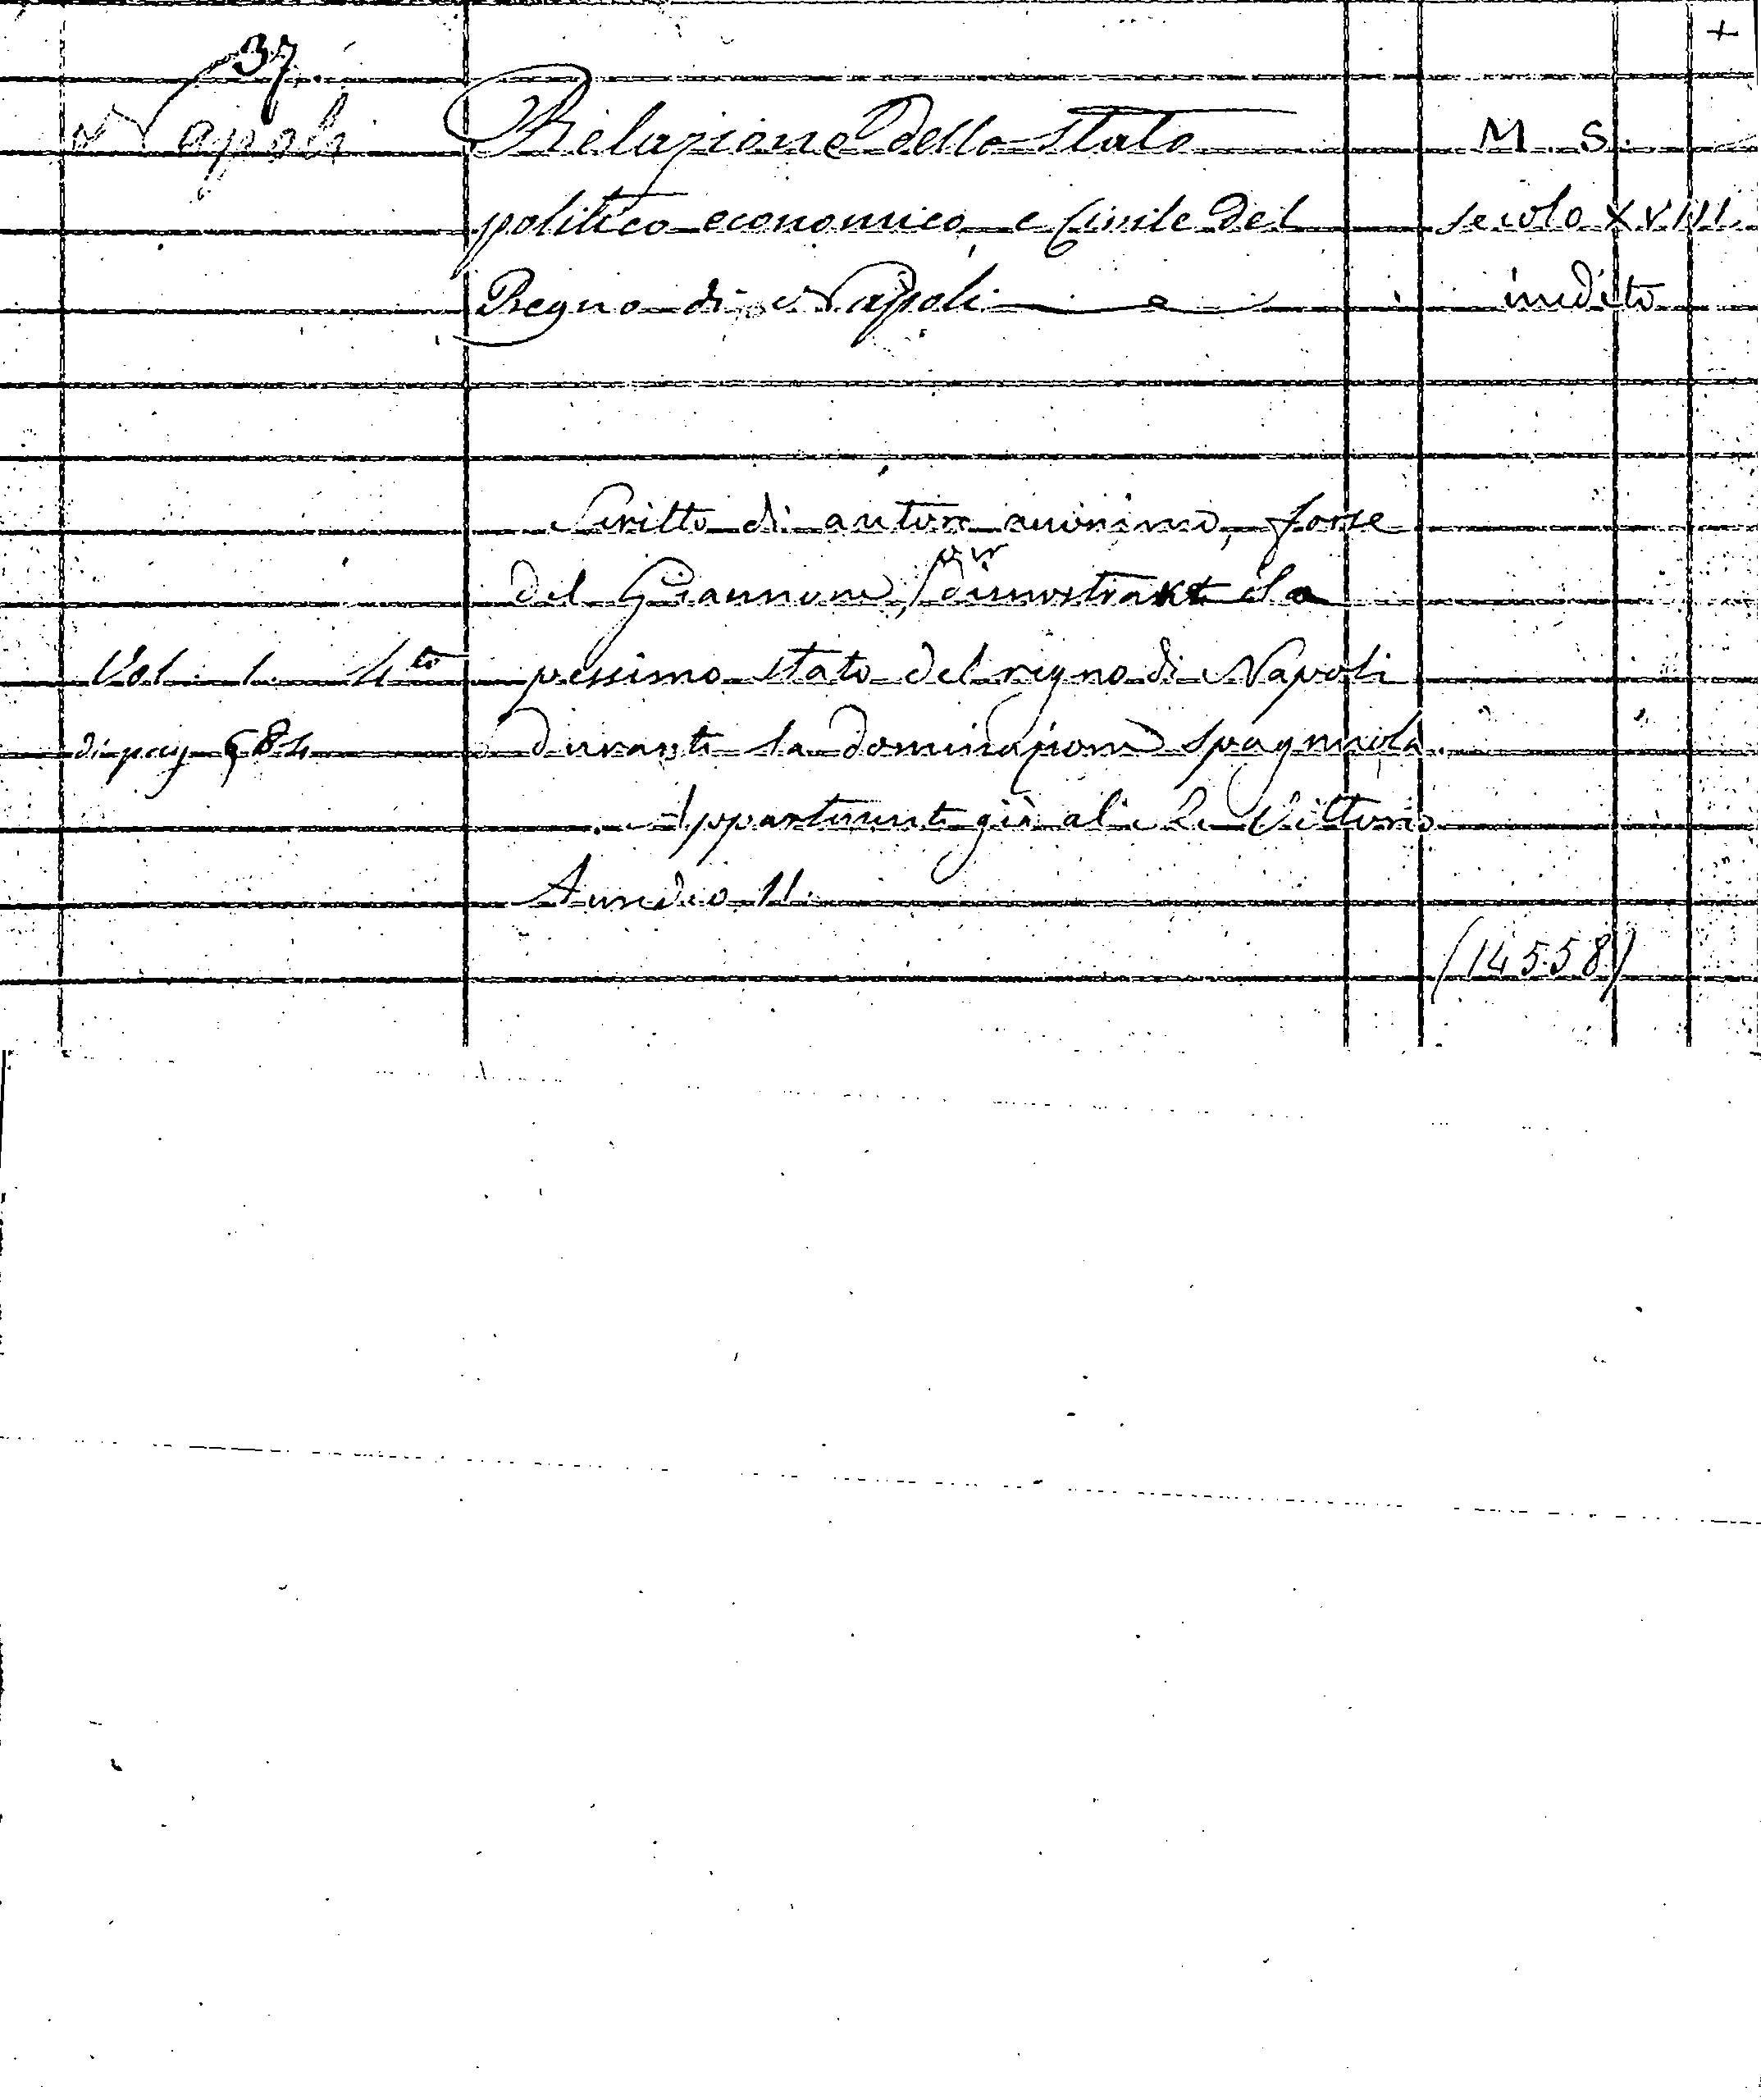 37.
Napoli
Relazione dello Stato
M. S.
politico economico e Civile del
secolo XVIII.
Regno di Napoli
inedito
Scritto di autore anonimo, forse
del Giannone, per
dimostrare lo
Vol. 1. 4to
pessimo stato del regno di Napoli
di pag 684
durante la dominazione spagnuola.
Appartenente già al Re Vittorio
Amedeo II.
(14558)